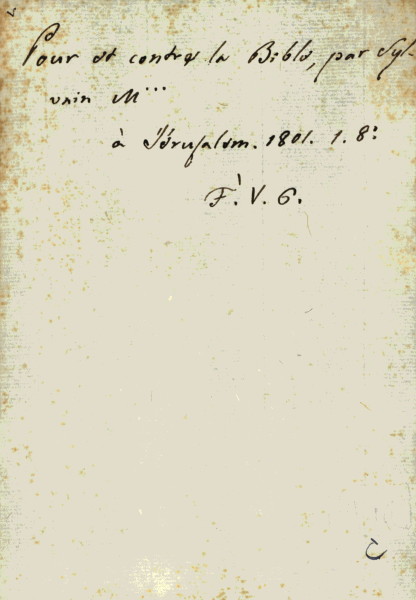 Pour et contre la Bible, par Syl-
vain M***
à Jérusalem. 1801. 1. 8º
F. V. 6.
C